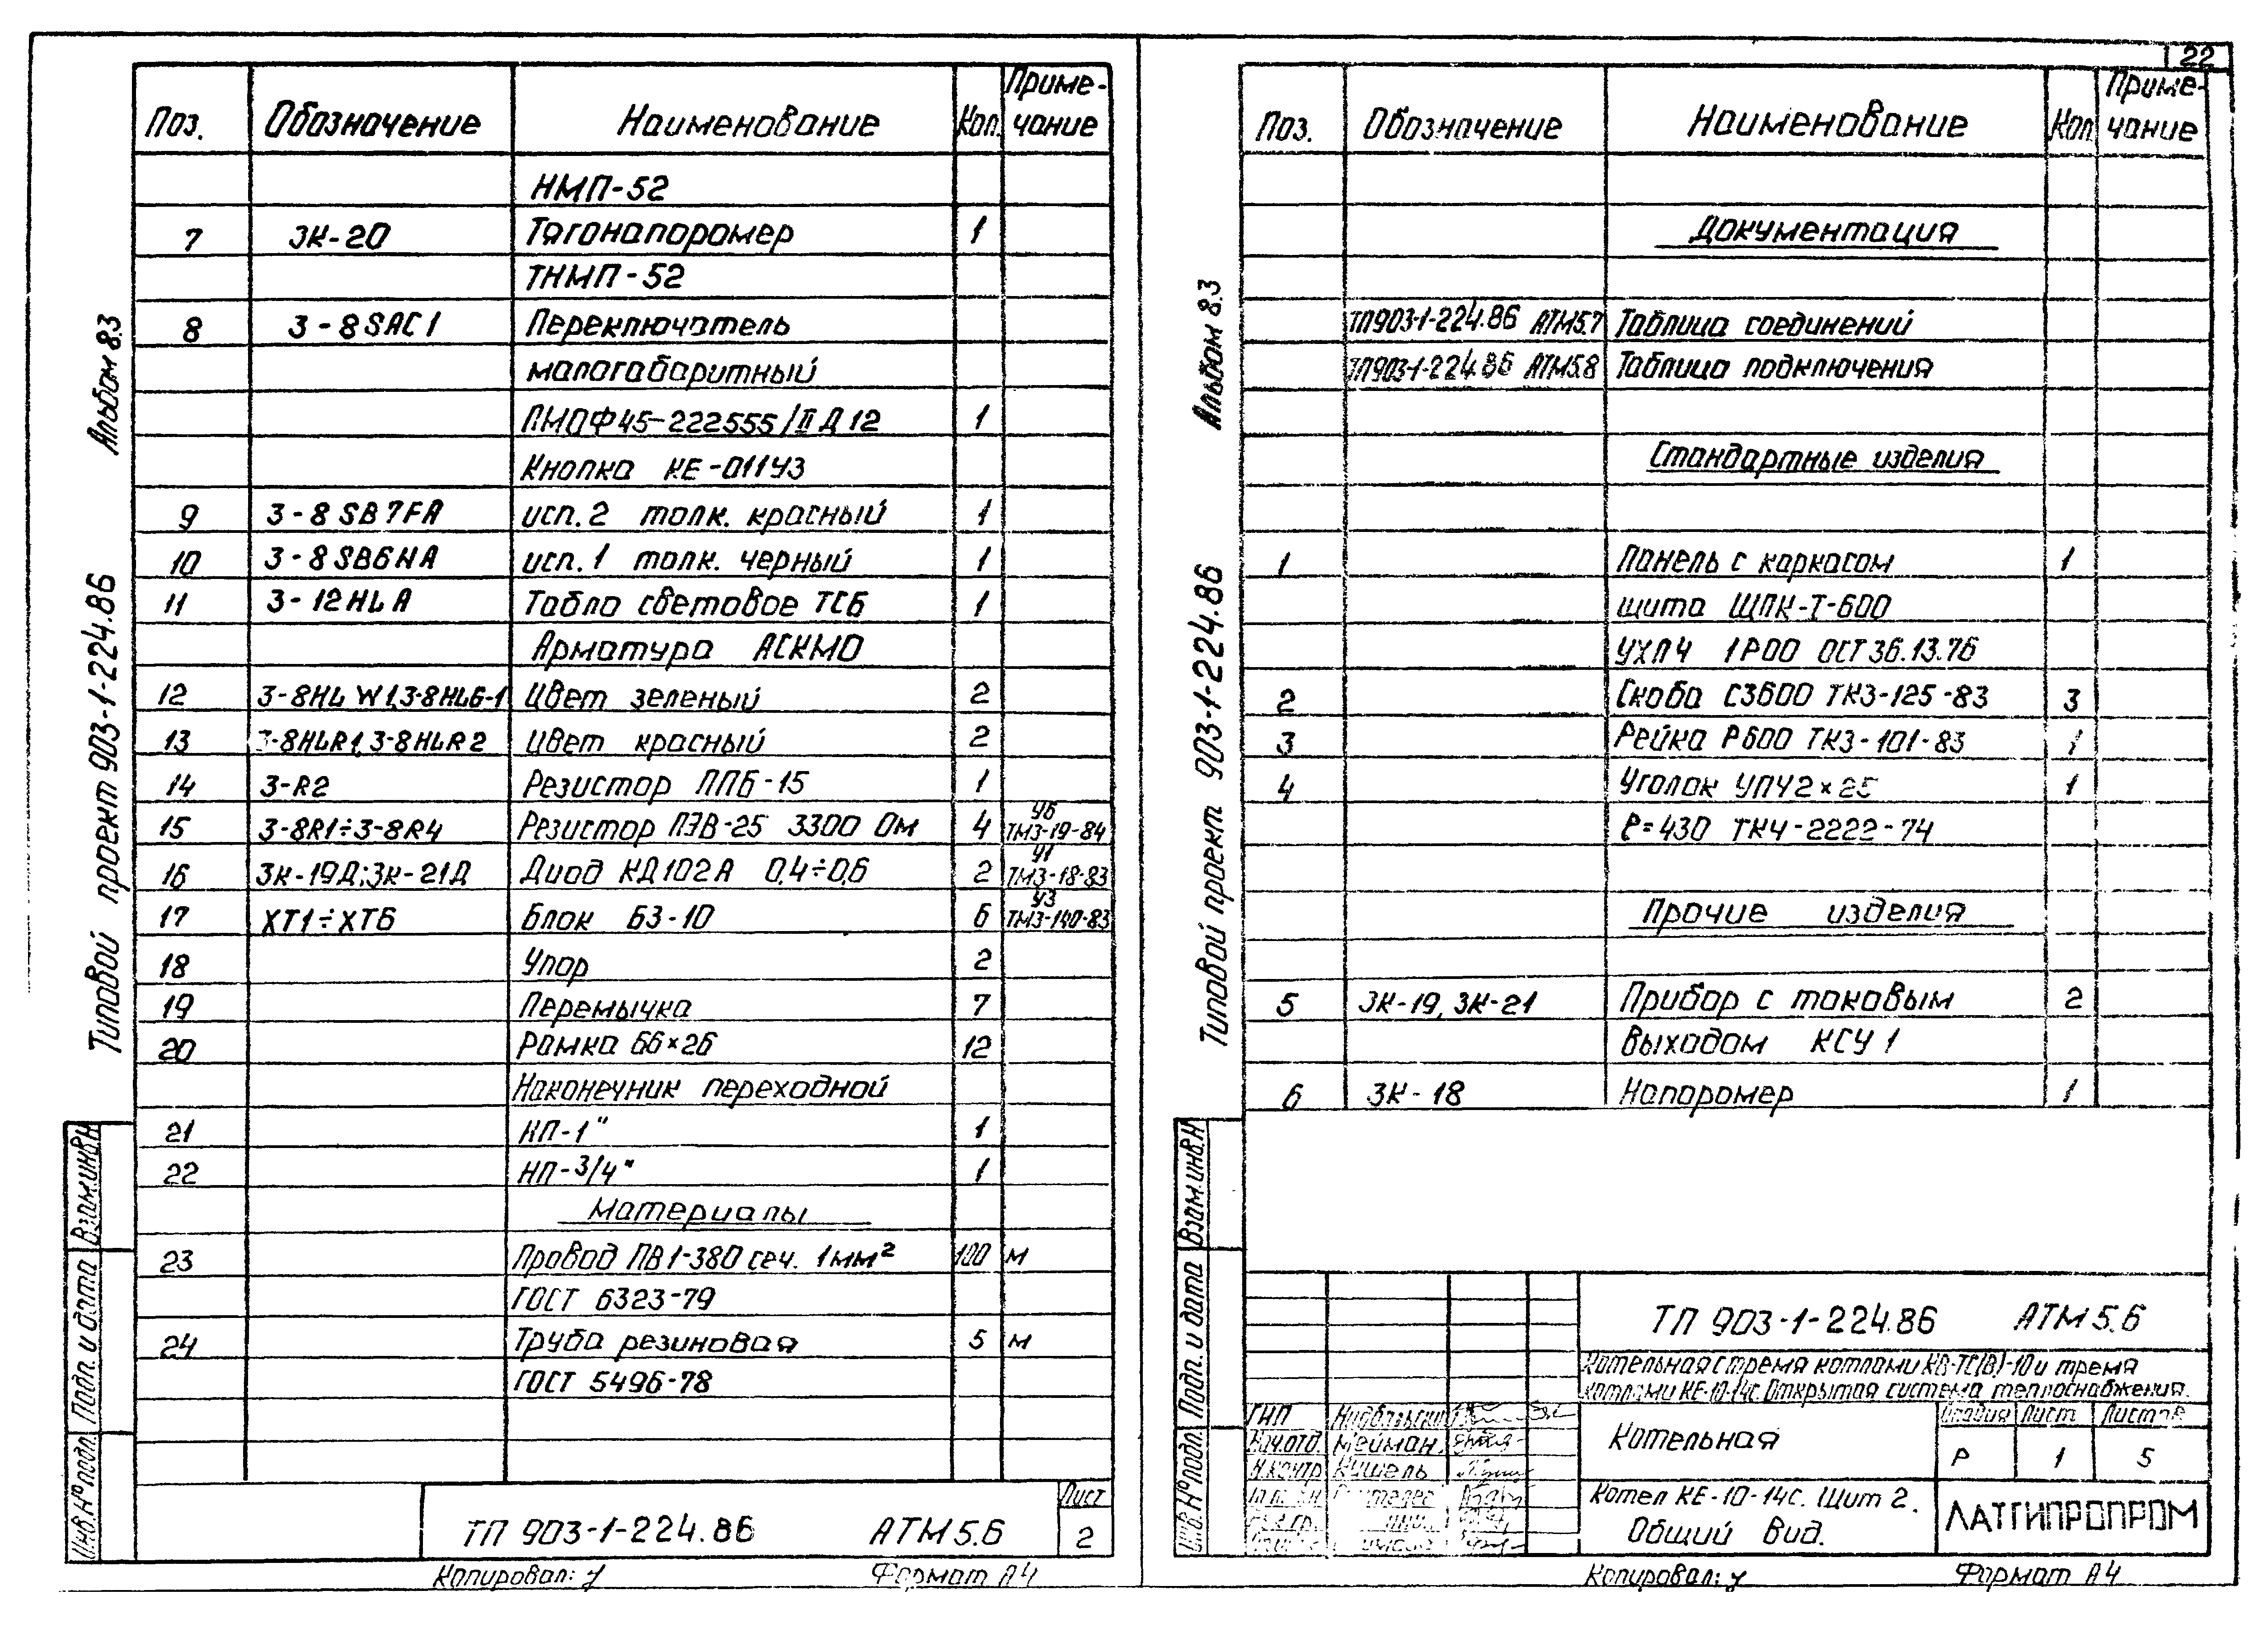 22
Альбом 8.3
Типовой проект 903-1-224.86
Поз. Обозначение Наименование Кол. Приме-
чание
НМП-52
7 3К-20 Тягонапоромер 1
ТНМП-52
8 3-8SAC1 Переключатель
малогабаритный
ПМОФ45-222555/II Д12 1
Кнопка КЕ-011У3
9 3-8SB7FA исп.2 толк. красный 1
10 3-8SB6HA исп.1 толк. черный 1
11 3-12HLA Табло световое ТСБ 1
Арматура АСКМО
12 3-8HLW1,3-8HLG-1 Цвет зеленый 2
13 3-8HLR1,3-8HLR2 Цвет красный 2
14 3-R2 Резистор ППБ-15 1
15 3-8R1÷3-8R4 Резистор ПЭВ-25 3300 Ом 4 У6
ТМ3-19-84
16 3К-19Д;3К-21Д Диод КД102А 0,4÷0,6 2 У1
ТМ3-18-83
17 ХТ1÷ХТ6 Блок БЗ-10 6 У3
ТМ3-140-83
18 Упор 2
19 Перемычка 7
20 Рамка 66×26 12
Наконечник переходной
21 КП-1" 1
22 НП-3/4" 1
Материалы
23 Провод ПВ1-380 сеч. 1мм² 100 м
ГОСТ 6323-79
24 Труба резиновая 5 м
ГОСТ 5496-78
Взам.инв.Н
Подп. и дата
Инв.№подл.
ТП 903-1-224.86 АТМ5.6
Лист
2
Копировал: Формат А4
Альбом 8.3
Типовой проект 903-1-224.86
Поз. Обозначение Наименование Кол Приме-
чание
Документация
ТП903-1-224.86 АТМ5.7 Таблица соединений
ТП903-1-224.86 АТМ5.8 Таблица подключения
Стандартные изделия
1 Панель с каркасом 1
щита ЩПК-Т-600
УХЛ4 1Р00 ОСТ36.13.76
2 Скоба С3600 ТК3-125-83 3
3 Рейка Р600 ТК3-101-83 1
4 Уголок УПЧ2×25 1
ℓ=430 ТК4-2222-74
Прочие изделия
5 3К-19, 3К-21 Прибор с токовым 2
выходом КСУ1
6 3К-18 Напоромер 1
Взам.инв.Н
Подп. и дата
Инв.№подл.
ТП 903-1-224.86 АТМ5.6
Котельная с тремя котлами КВ-ТС(В)-10 и тремя
котлами КЕ-10-14с. Открытая система теплоснабжения.
ГИП
Нач.отд. Мейман
Н.контр Кушель
Котельная
Стадия Лист Листов
Р 1 5
Котел КЕ-10-14с. Щит 2.
Общий вид.
ЛАТГИПРОПРОМ
Копировал: Формат А4